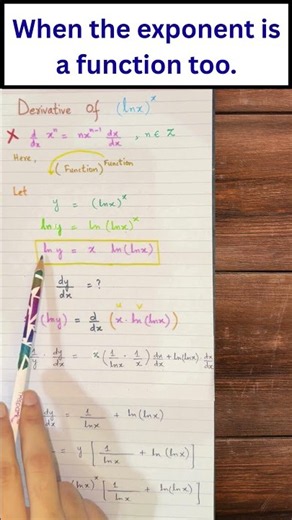 When the exponent is
a function too.
Derivative Of (lnx)^x
✗ d/dx x^n = nx^(n-1) dx/dx , n ∈ Z
Here, (Function)^Function
Let
y = (lnx)^x
ln y = ln (lnx)^x
ln y = x ln(lnx)
dy/dx = ?
(lny) = d/dx (x · ln(lnx))
1/y · dy/dx = x(1/lnx · 1/x) dx/dx + ln(lnx) · dx/dx
dy/dx = 1/lnx + ln(lnx)
= y [1/lnx + ln(lnx)]
x)^x [1/lnx + ln(lnx)]